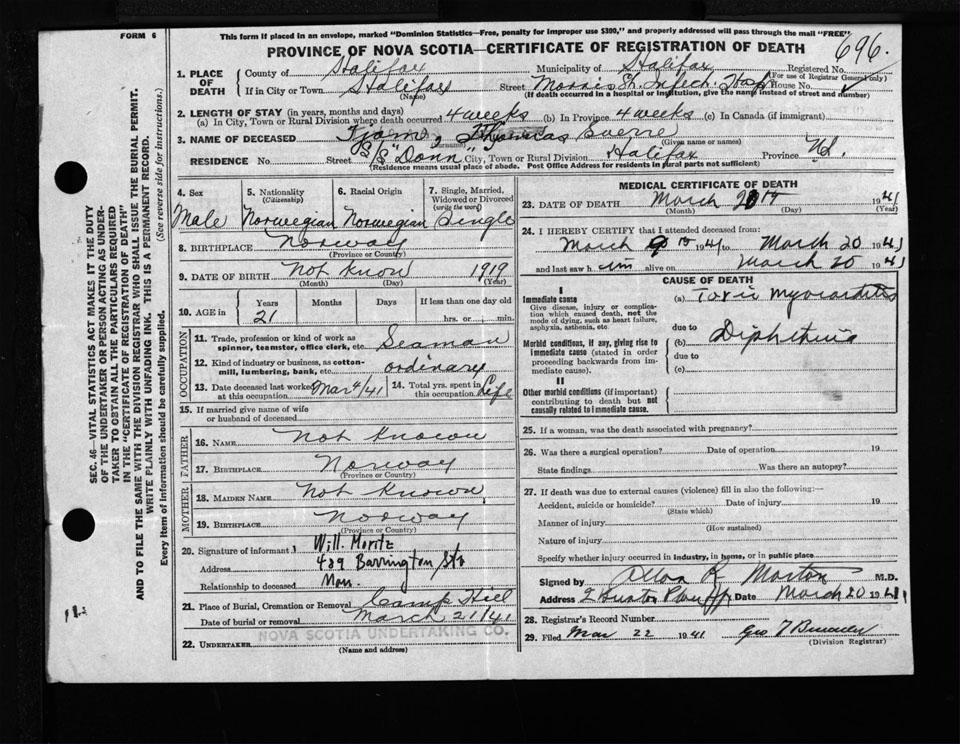 FORM 6
This form if placed in an envelope, marked "Dominion Statistics—Free, penalty for improper use $300," and properly addressed will pass through the mail "FREE"
PROVINCE OF NOVA SCOTIA—CERTIFICATE OF REGISTRATION OF DEATH
696
1. PLACE OF DEATH
County of Halifax Municipality of Halifax Registered No.
(For use of Registrar General only)
If in City or Town Halifax Street Morris St. Infect. Hosp House No.
(Name) (If death occurred in a hospital or institution, give the name instead of street and number)
2. LENGTH OF STAY (in years, months and days)
(a) In City, Town or Rural Division where death occurred 4 weeks (b) In Province 4 weeks (c) In Canada (if immigrant)
3. NAME OF DECEASED Thomas Sverre
(Surname) (Given name or names)
RESIDENCE No. Street S/S "Donn" City, Town or Rural Division Halifax Province N.S.
(Residence means usual place of abode. Post Office Address for residents in rural parts not sufficient)
4. Sex
Male
5. Nationality
(Citizenship)
Norwegian
6. Racial Origin
Norwegian
7. Single, Married, Widowed or Divorced
(write the word)
Single
8. BIRTHPLACE Norway
(Province or Country)
9. DATE OF BIRTH Not Know 1919
(Month) (Day) (Year)
10. AGE in Years Months Days If less than one day
21 hrs. or min.
OCCUPATION
11. Trade, profession or kind of work as spinner, teamster, office clerk, etc. Seaman
12. Kind of industry or business, as cotton-mill, lumbering, bank, etc. ordinary
13. Date deceased last worked at this occupation Mar 4/41 14. Total yrs. spent in this occupation Life
15. If married give name of wife or husband of deceased
FATHER
16. NAME Not Known
17. BIRTHPLACE Norway
(Province or Country)
MOTHER
18. MAIDEN NAME Not Known
19. BIRTHPLACE Norway
(Province or Country)
20. Signature of informant Will. Moritz
Address 429 Barrington Str
Relationship to deceased Non.
21. Place of Burial, Cremation or Removal Camp Hill
Date of burial or removal March 21/41
NOVA SCOTIA UNDERTAKING CO.
22. UNDERTAKER
(Name and address)
MEDICAL CERTIFICATE OF DEATH
23. DATE OF DEATH March 1941
(Month) (Day) (Year)
24. I HEREBY CERTIFY that I attended deceased from:
March 1941 to March 20 1941
and last saw him alive on March 20 1941
CAUSE OF DEATH
I
Immediate cause
Give disease, injury or complication which caused death, not the mode of dying, such as heart failure, asphyxia, asthenia, etc.
(a) Toxic Myocarditis
due to
Morbid conditions, if any, giving rise to immediate cause (stated in order proceeding backwards from immediate cause).
(b) Diphtheria
due to
(c)
II
Other morbid conditions (if important) contributing to death but not causally related to immediate cause.
25. If a woman, was the death associated with pregnancy?
26. Was there a surgical operation? Date of operation 19
State findings Was there an autopsy?
27. If death was due to external causes (violence) fill in also the following:—
Accident, suicide or homicide? Date of injury 19
(State which)
Manner of injury
(How sustained)
Nature of injury
Specify whether injury occurred in industry, in home, or in public place
Signed by Allan R Morton M.D.
Address Date March 20 1941
28. Registrar's Record Number
29. Filed Mar 22 1941 Geo
(Division Registrar)
SEC. 46—VITAL STATISTICS ACT MAKES IT THE DUTY
OF THE UNDERTAKER OR PERSON ACTING AS UNDER-
TAKER TO OBTAIN ALL THE PARTICULARS REQUIRED
IN THE "CERTIFICATE OF REGISTRATION OF DEATH"
AND TO FILE THE SAME WITH THE DIVISION REGISTRAR WHO SHALL ISSUE THE BURIAL PERMIT.
WRITE PLAINLY WITH UNFADING INK. THIS IS A PERMANENT RECORD.
Every item of information should be carefully supplied. (See reverse side for instructions.)